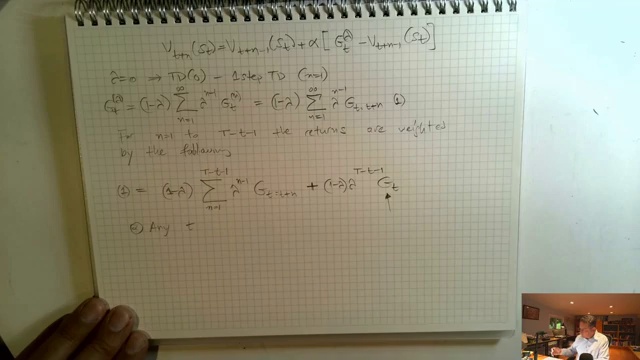 V_{t+n}(S_t) = V_{t+n-1}(S_t) + α [ G_t^λ - V_{t+n-1}(S_t) ]
λ=0 ⇒ TD(0) - 1 step TD (n=1)
G_t^{(λ)} = (1-λ) ∑_{n=1}^{∞} λ^{n-1} G_t^{(n)} = (1-λ) ∑_{n=1}^{∞} λ^{n-1} G_{t,t+n} (1)
For n=1 to T-t-1 the returns are weighted
by the following
(1) = (1-λ) ∑_{n=1}^{T-t-1} λ^{n-1} G_{t=t+n} + (1-λ) λ^{T-t-1} G_t
Any t